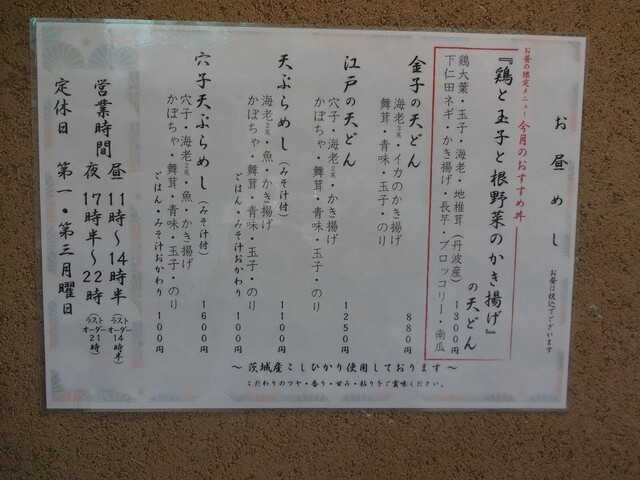 お昼めし
お昼は税込でございます
お昼の限定メニュー 今月のおすすめ丼
『鶏と玉子と根野菜のかき揚げ』
の天どん
鶏大葉・玉子・海老・地椎茸(丹波産) 1300円
下仁田ネギ・かき揚げ・長芋・ブロッコリー・南瓜
金子の天どん 880円
海老3尾・イカのかき揚げ
舞茸・青味・玉子・のり
江戸の天どん 1250円
穴子・海老2尾・かき揚げ
かぼちゃ・舞茸・青味・玉子・のり
天ぷらめし(みそ汁付) 1100円
海老2尾・魚・かき揚げ
かぼちゃ・舞茸・青味・玉子・のり
ごはん・みそ汁おかわり 100円
穴子天ぷらめし(みそ汁付) 1600円
穴子・海老2尾・魚・かき揚げ
かぼちゃ・舞茸・青味・玉子・のり
ごはん・みそ汁おかわり 100円
〜茨城産こしひかり使用しております〜
こだわりのツヤ・香り・甘み・粘りをご賞味ください。
営業時間 昼 11時〜14時半(ラストオーダー14時半)
夜 17時半〜22時(ラストオーダー21時)
定休日 第一・第三月曜日